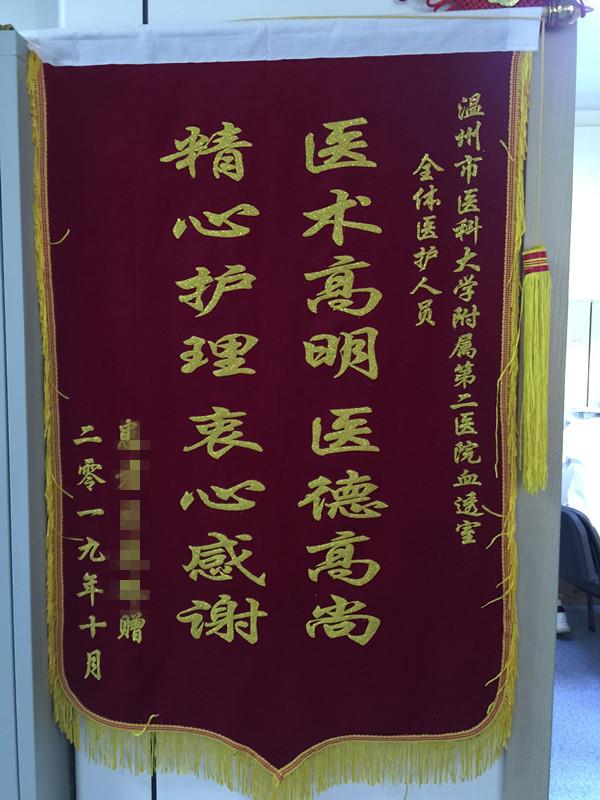 温州市医科大学附属第二医院血透室
全体医护人员
医术高明 医德高尚
精心护理 衷心感谢
患者 赠
二零一九年十月